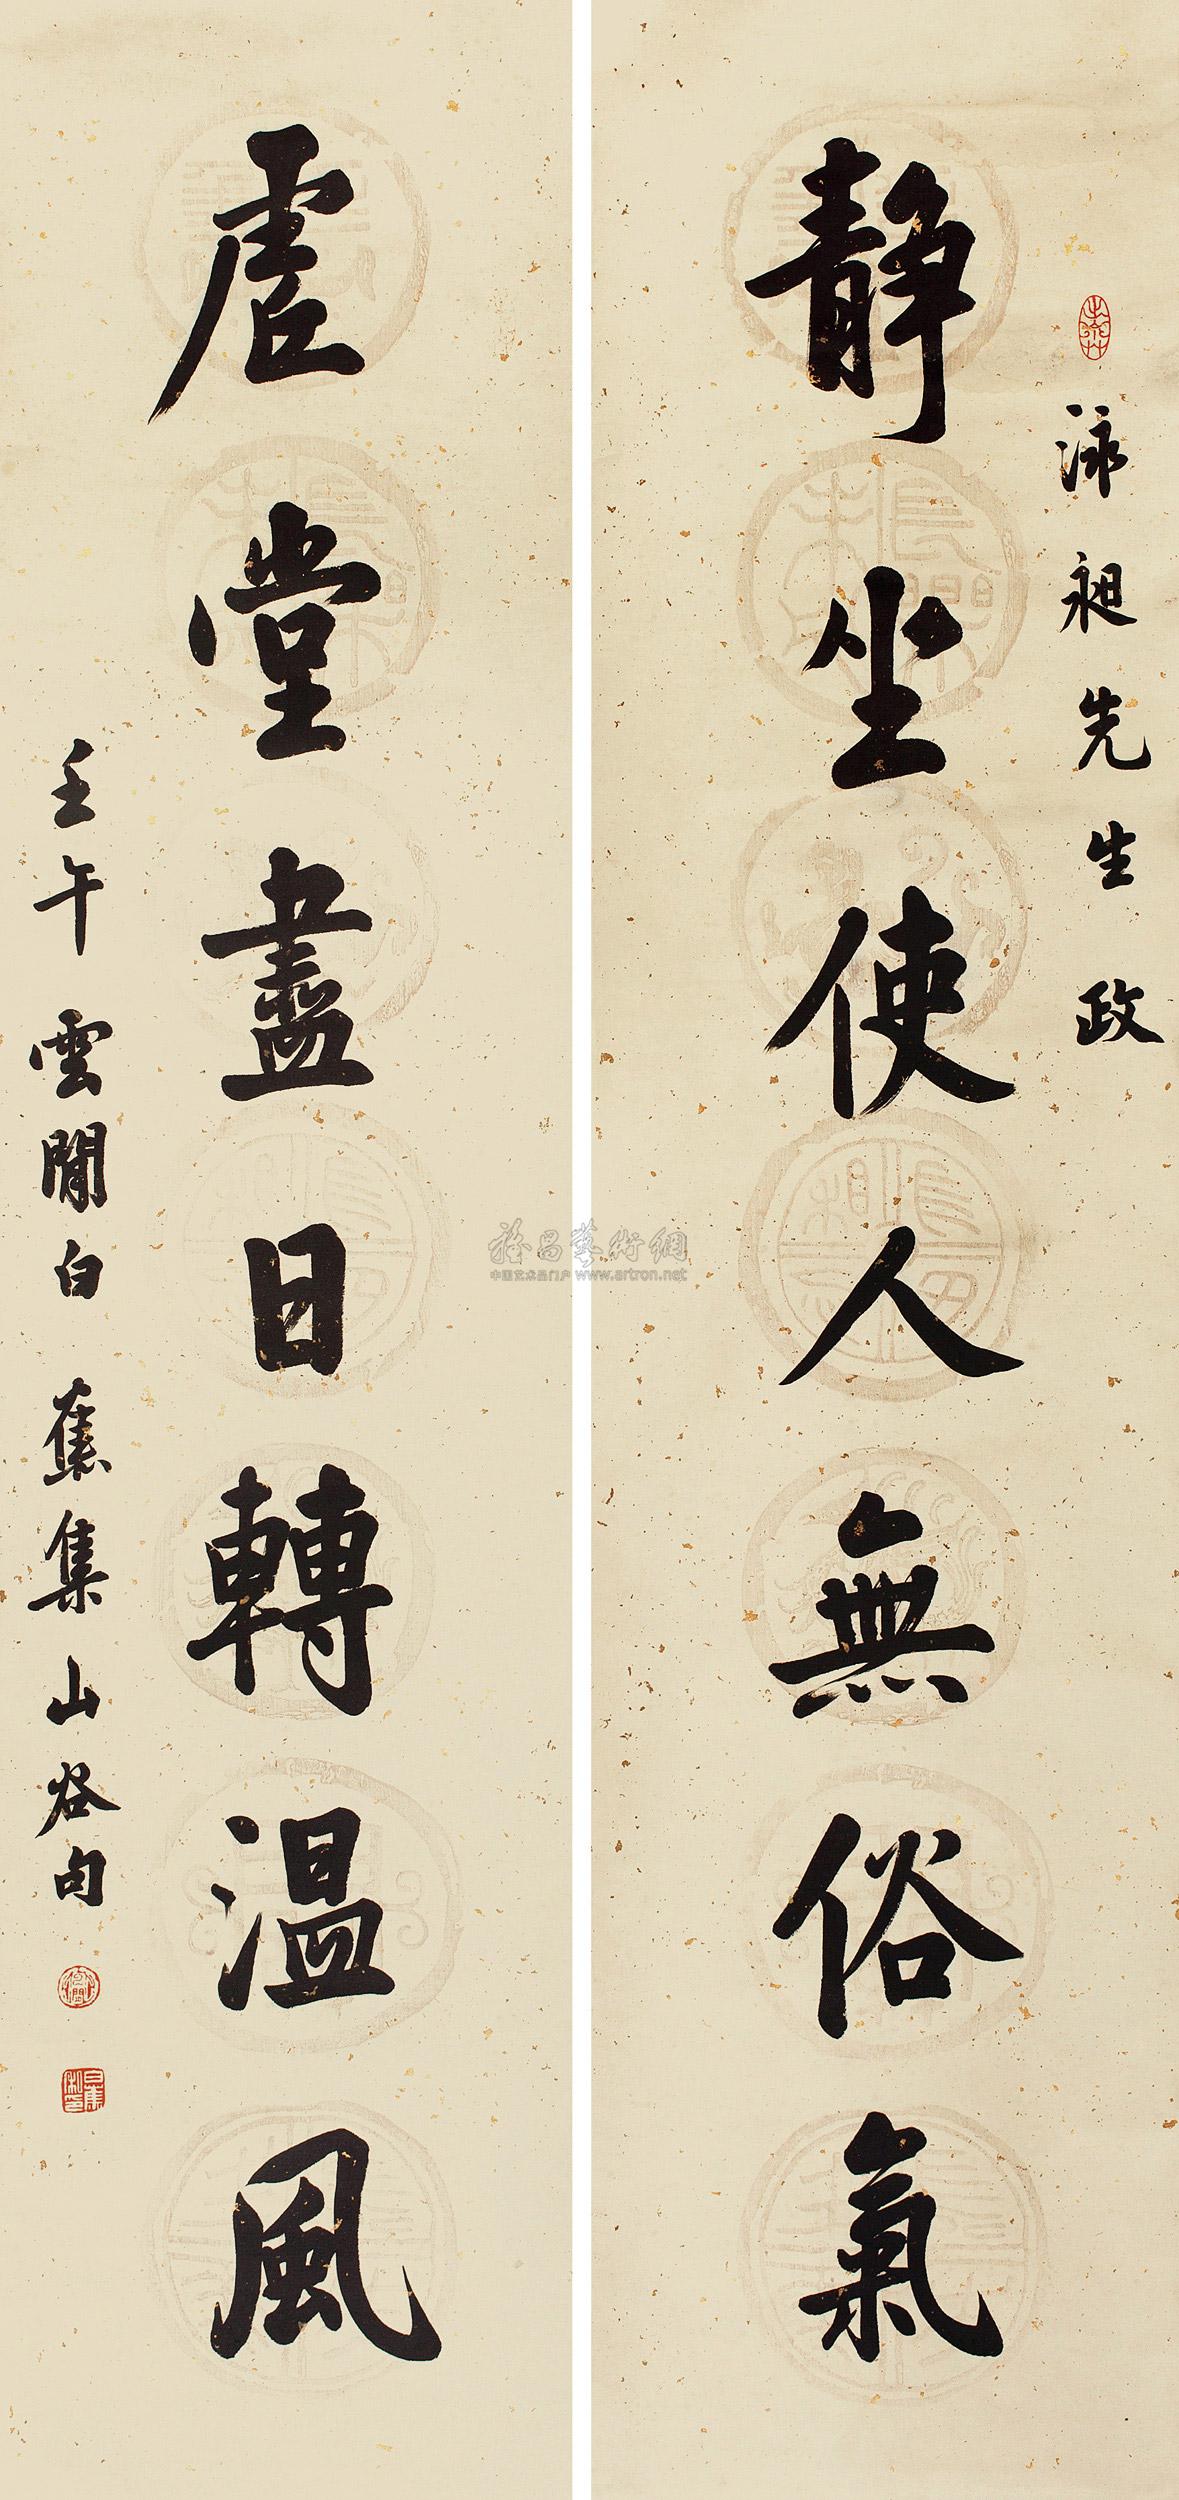 泳昶先生政
靜坐使人無俗氣
虛堂盡日轉溫風
壬午雲間白蕉集山谷句
雅昌藝術網
中国艺术品门户 www.artron.net